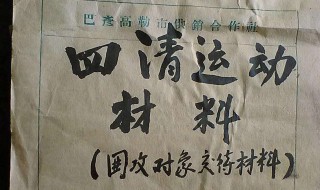 巴彦高勒市供銷合作社
四清运动
材料
(围攻对象交待材料)